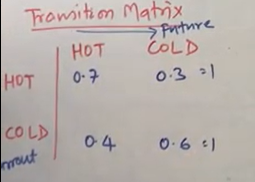 Transition Matrix
Future
HOT COLD
HOT 0.7 0.3 =1
COLD 0.4 0.6 =1